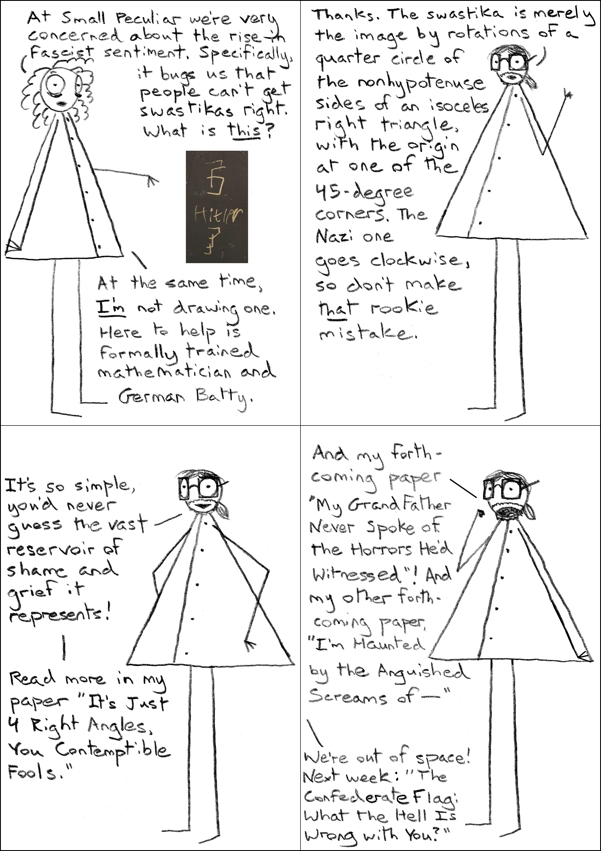 At Small Peculiar we're very
concerned about the rise in
Fascist sentiment. Specifically,
it bugs us that
people can't get
swastikas right.
What is this?
Hitler
At the same time,
I'm not drawing one.
Here to help is
formally trained
mathematician and
German Batty.
Thanks. The swastika is merely
the image by rotations of a
quarter circle of
the nonhypotenuse
sides of an isoceles
right triangle,
with the origin
at one of the
45-degree
corners. The
Nazi one
goes clockwise,
so don't make
that rookie
mistake.
It's so simple,
you'd never
guess the vast
reservoir of
shame and
grief it
represents!
Read more in my
paper "It's Just
4 Right Angles,
You Contemptible
Fools."
And my forth-
coming paper
"My Grandfather
Never Spoke of
the Horrors He'd
Witnessed"! And
my other forth-
coming paper,
"I'm Haunted
by the Anguished
Screams of—"
We're out of space!
Next week: "The
Confederate Flag:
What the Hell Is
Wrong with You?"